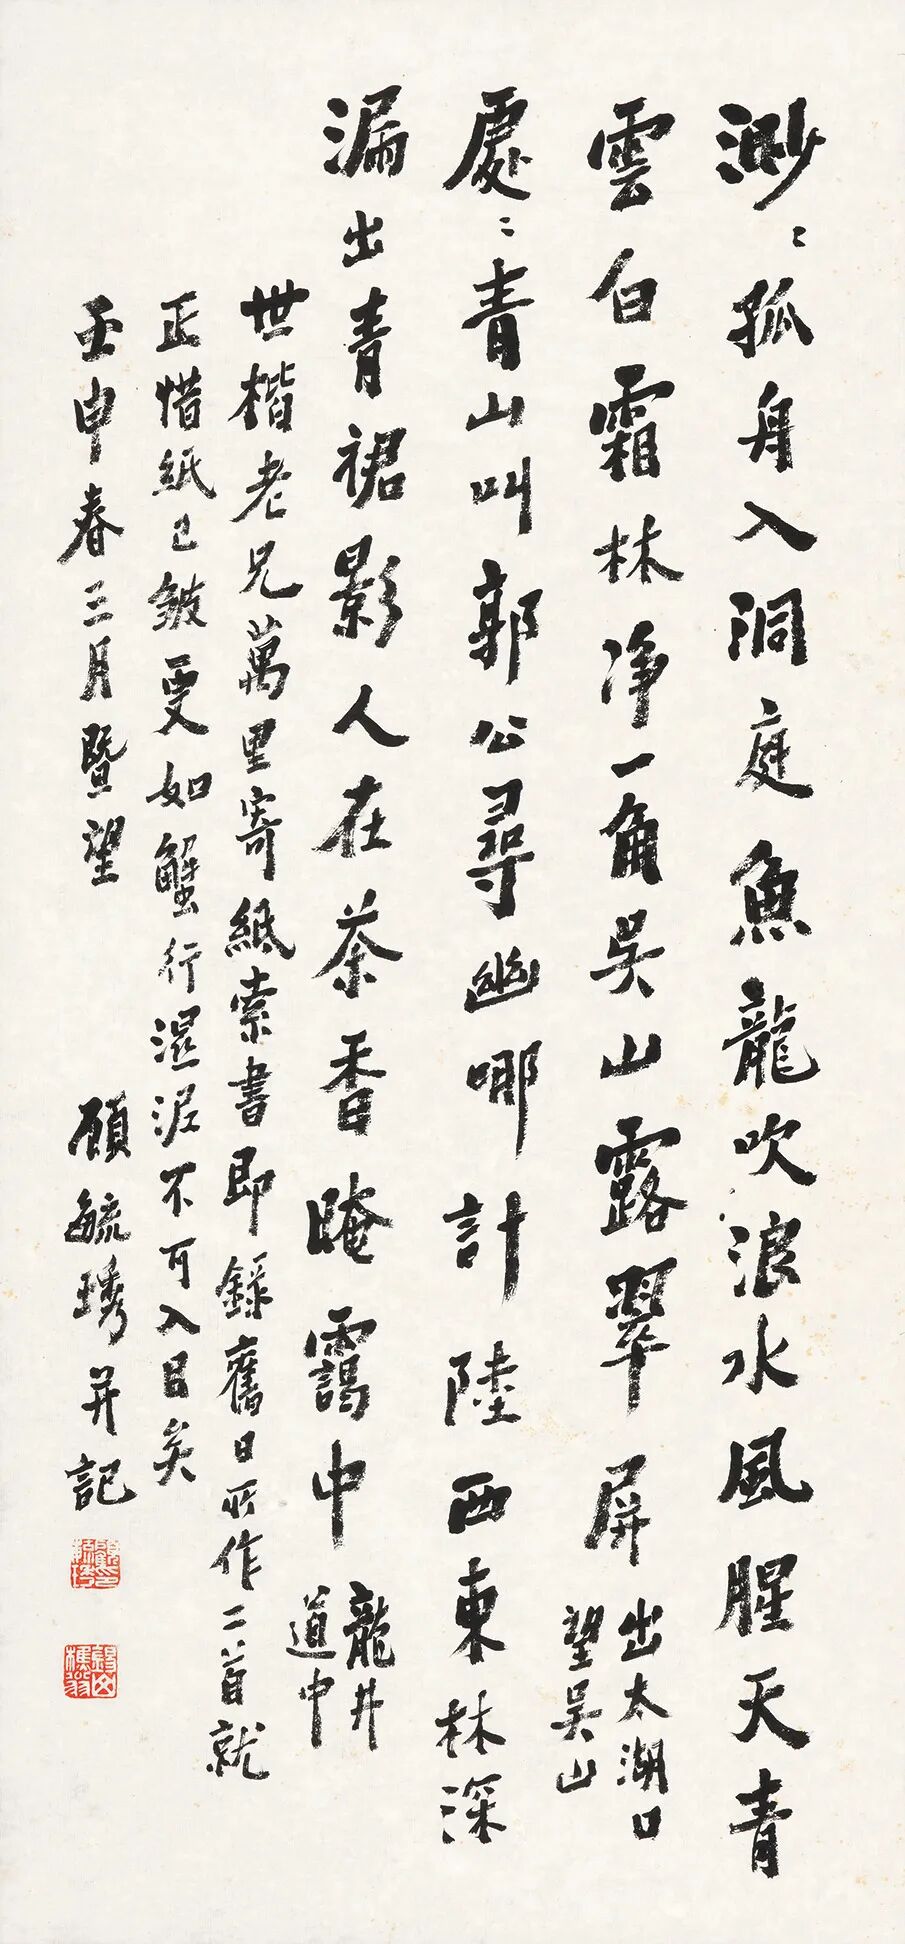 渺〻孤舟入洞庭魚龍吹浪水風腥天青
雲白霜林净一角吳山露翠屏
出太湖口
望吳山
處〻青山叫郭公尋幽哪計陸西東林深
漏出青裙影人在茶香晻靄中
龍井
道中
世楷老兄萬里寄紙索書即錄舊日所作二首就
正惜紙已皴更如蟹行濕泥不可入目矣
壬申春三月暨望
顧毓琇并記